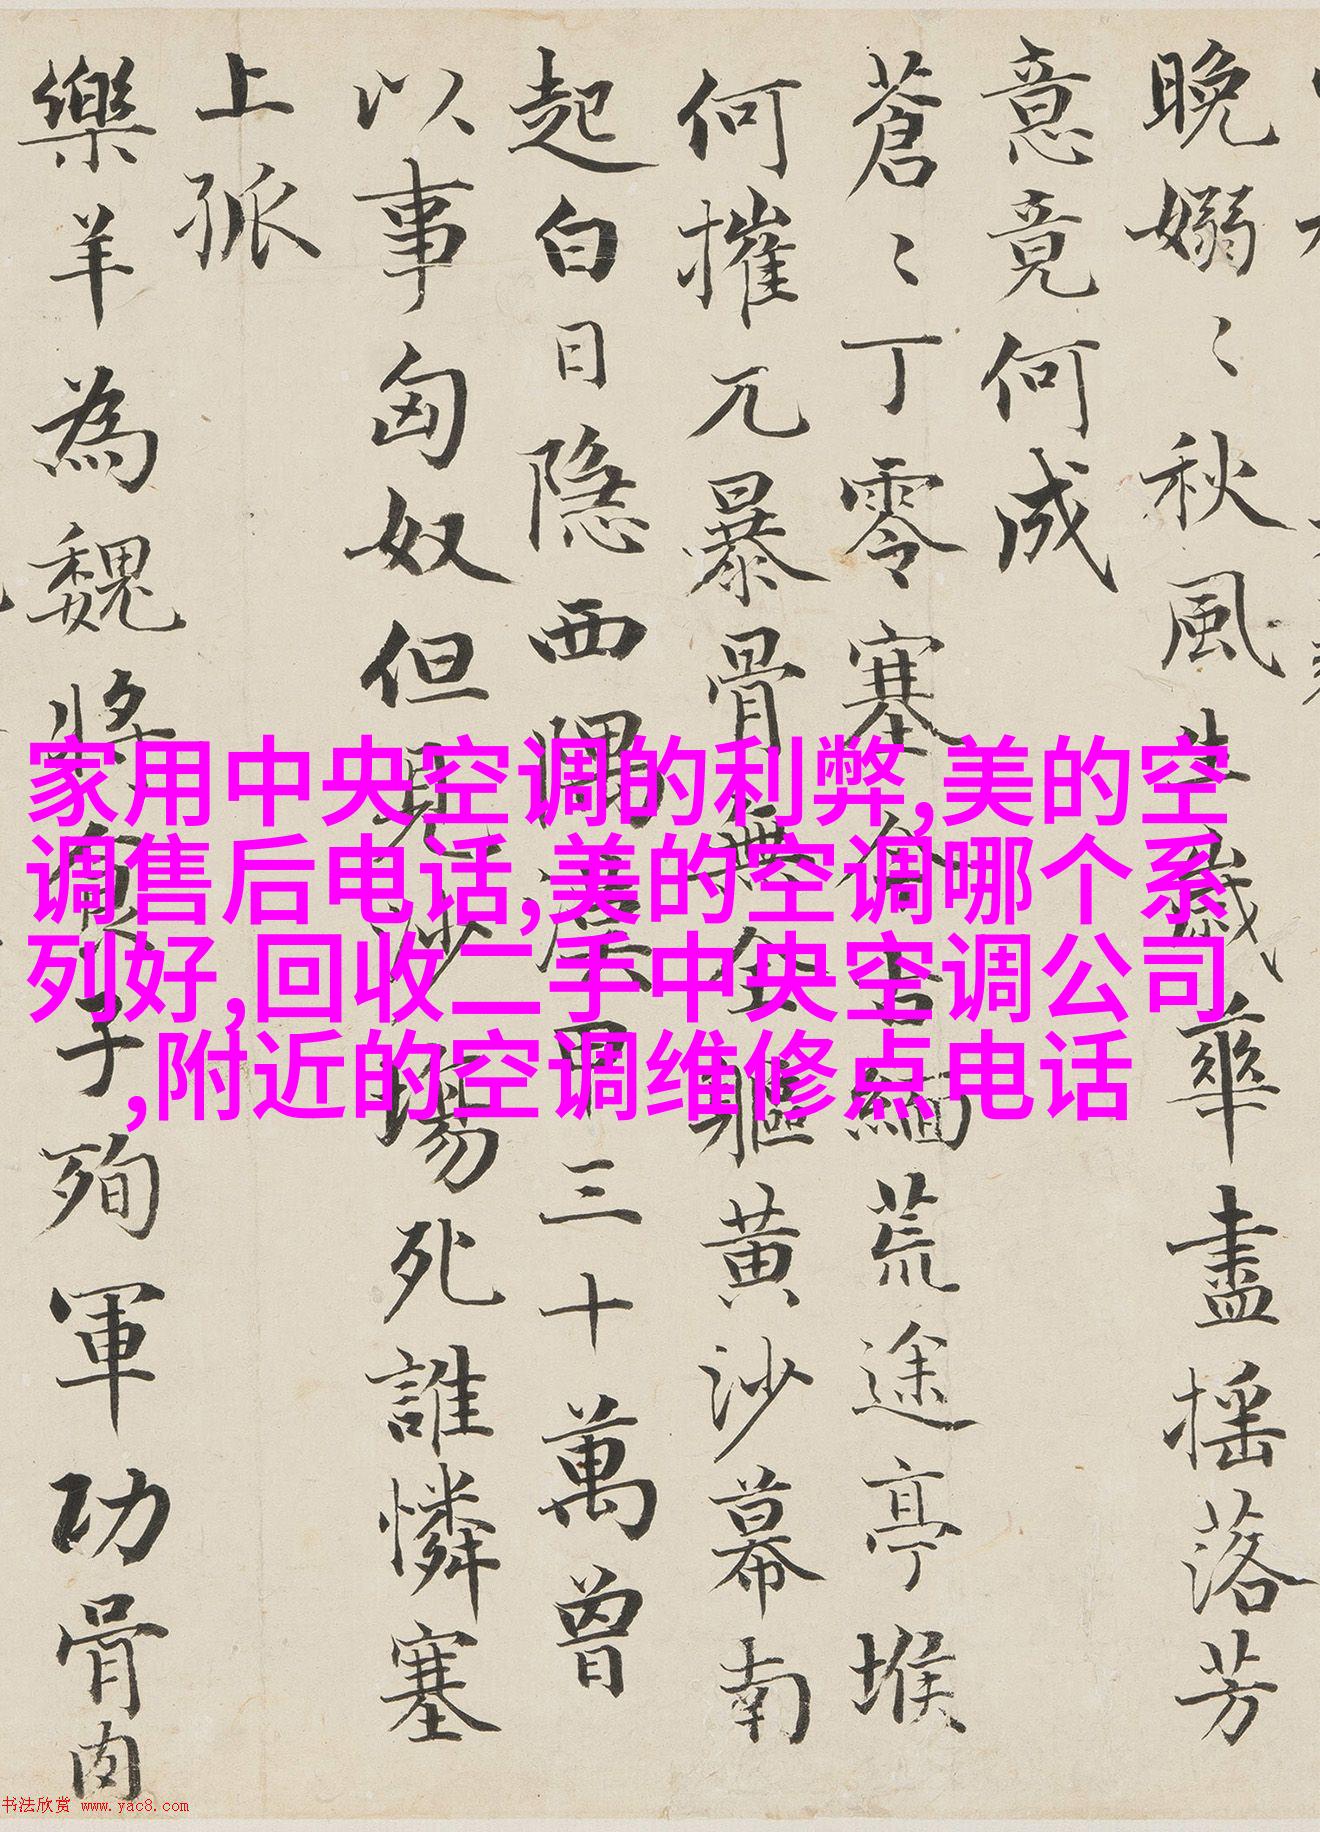 晚嫋〻秋風生歲華盡搖落芳
意竟何成
蒼〻丁零塞今古緬荒途亭堠
何摧兀暴骨無全軀黄沙幕南
起白日隱西隅漢甲三十萬曾
以事匈奴但見沙場死誰憐塞
上孤
樂羊為魏將食子殉軍功骨肉
家用中央空调的利弊,美的空
调售后电话,美的空调哪个系
列好,回收二手中央空调公司
,附近的空调维修点电话
书法欣赏 www.yac8.com